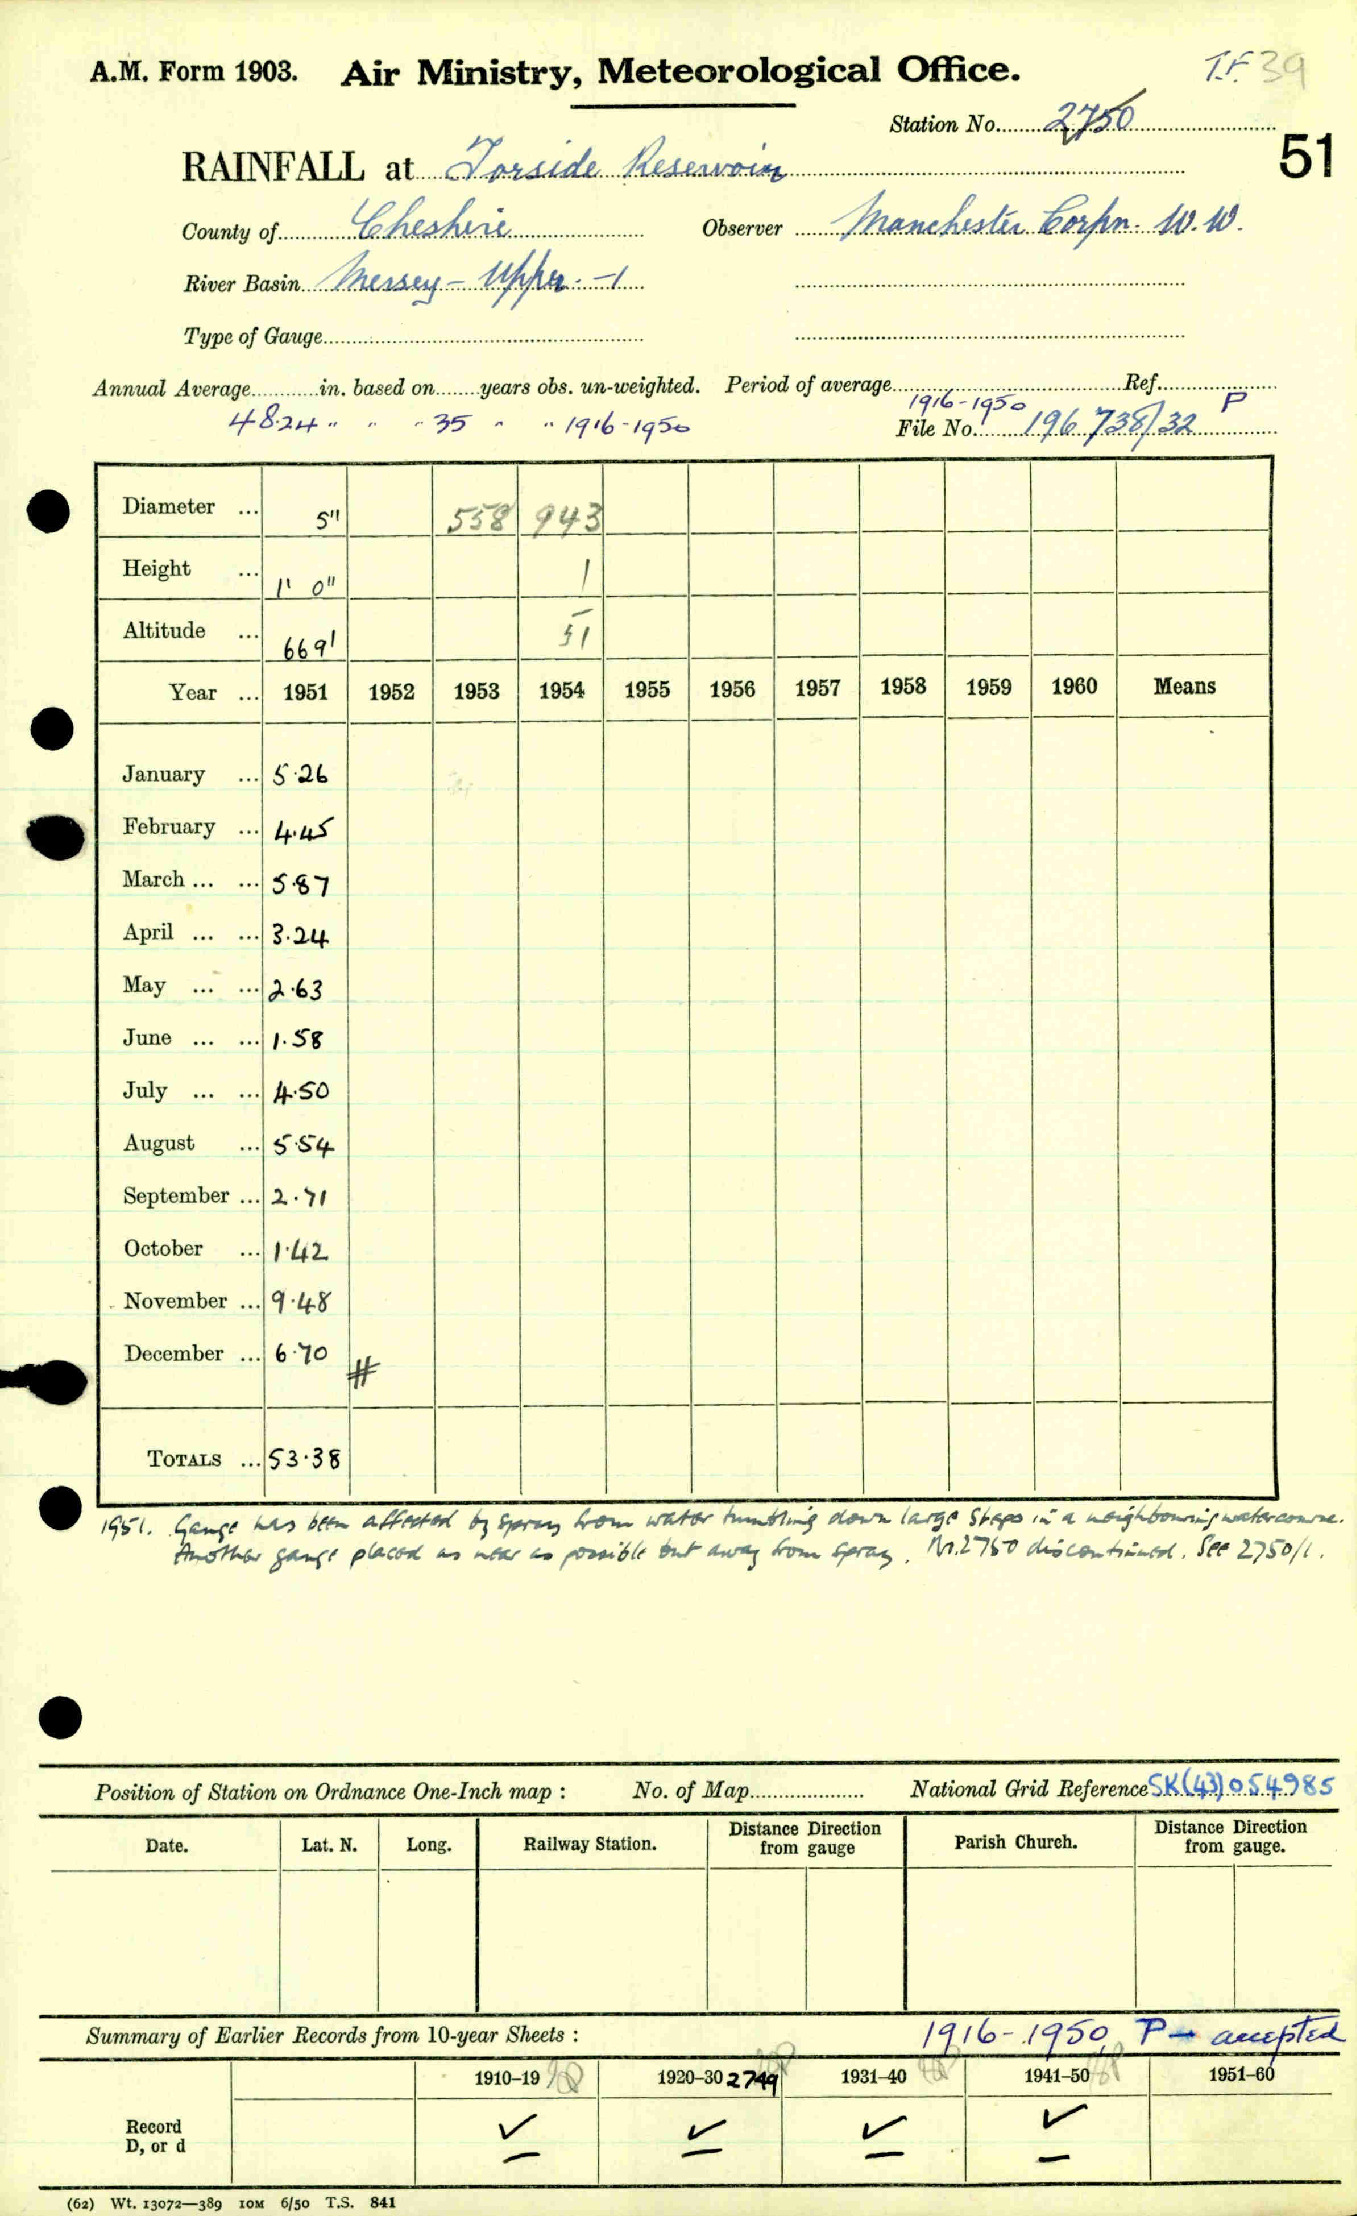 A.M. Form 1903. Air Ministry, Meteorological Office. T.F. 39
Station No. 2750
51
RAINFALL at Torside Reservoir
County of Cheshire Observer Manchester Corpn. W.W.
River Basin Mersey - Upper - 1
Type of Gauge
Annual Average in. based on years obs. un-weighted. Period of average Ref.
1916-1950 P
48.24 " " " 35 " " 1916-1950 File No. 196738/32
Diameter ... 5" 558 943
Height ... 1' 0" 1
Altitude ... 669' 51
Year ... 1951 1952 1953 1954 1955 1956 1957 1958 1959 1960 Means
January ... 5.26
February ... 4.45
March ... ... 5.87
April ... ... 3.24
May ... ... 2.63
June ... ... 1.58
July ... ... 4.50
August ... 5.54
September ... 2.71
October ... 1.42
November ... 9.48
December ... 6.70 #
TOTALS ... 53.38
1951. Gauge has been affected by spray from water tumbling down large steps in a neighbouring watercourse.
Another gauge placed as near as possible but away from spray. No. 2750 discontinued. See 2750/1.
Position of Station on Ordnance One-Inch map : No. of Map National Grid Reference SK(43)054985
Date. Lat. N. Long. Railway Station. Distance from gauge Direction Parish Church. Distance from gauge. Direction
Summary of Earlier Records from 10-year Sheets : 1916-1950 P - accepted
1910-19 1920-30 2749 1931-40 1941-50 1951-60
Record ✓ ✓ ✓ ✓
D, or d — — — —
(62) Wt. 13072—389 10M 6/50 T.S. 841